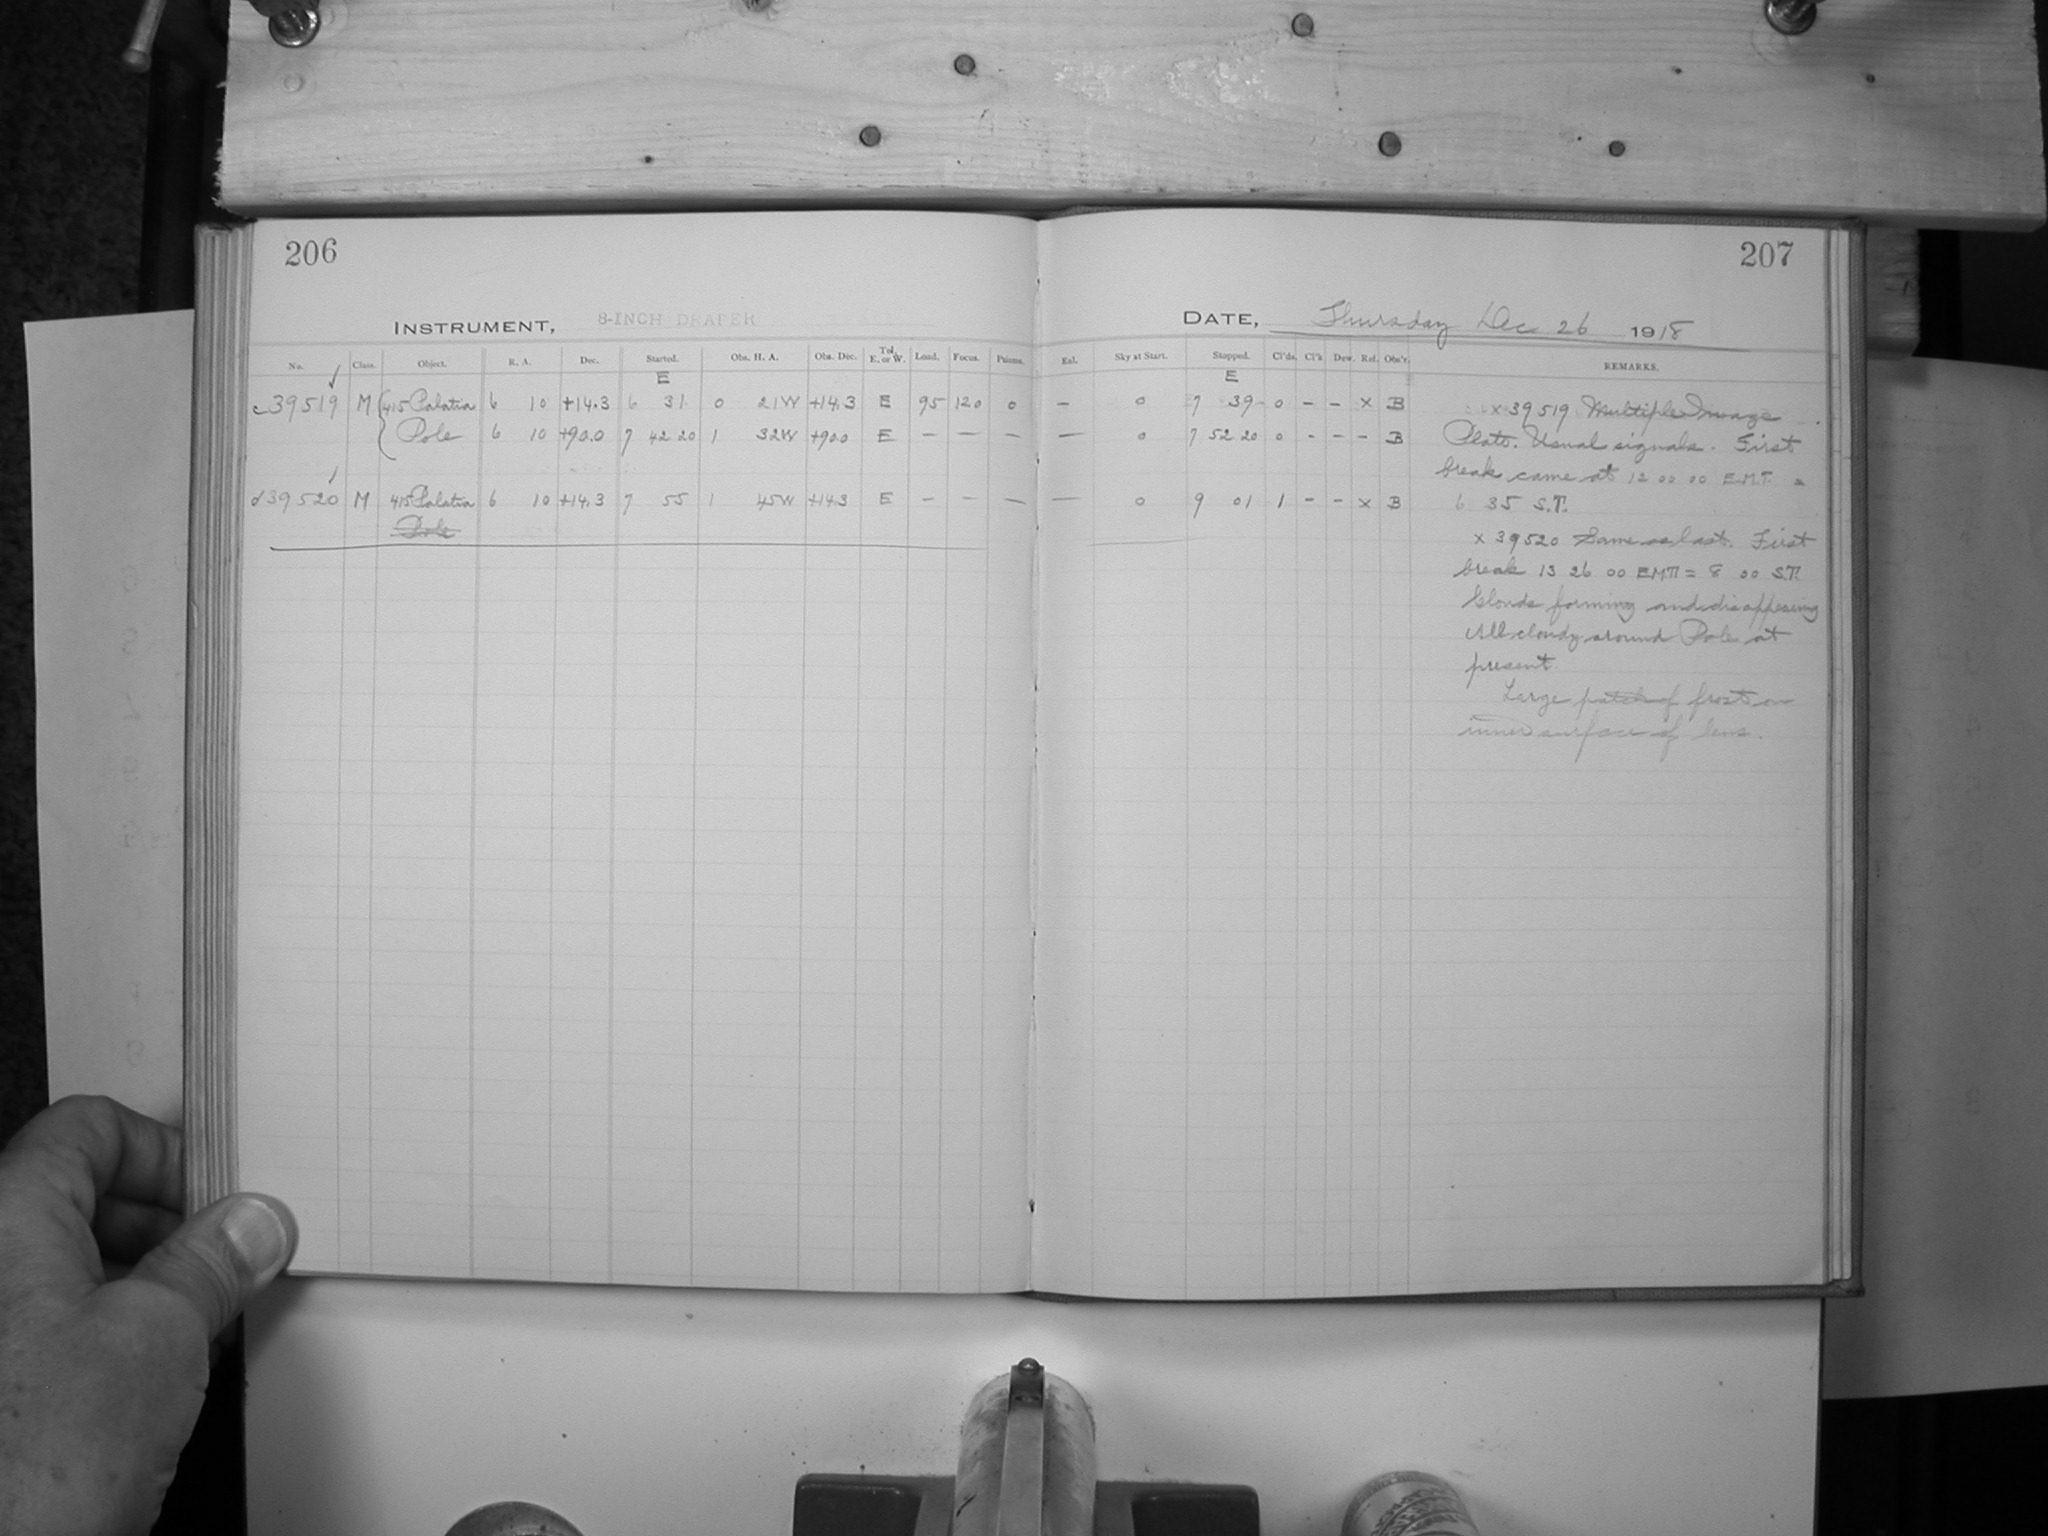 206
207
INSTRUMENT, 8-INCH DRAPER
DATE, Thursday Dec 26 1918
No. Class. Object. R. A. Dec. Started. Obs. H. A. Obs. Dec. Tel. E. or W. Load. Focus. Prisms. Exl. Sky at Start. Stopped. Cl'ds. Cl'k Dew. Rel. Obs'r. REMARKS.
E E
c 39519 M 415 Palatia 6 10 +14.3 6 31 0 21W +14.3 E 95 120 0 — 0 7 39- 0 - - x B
Pole 6 10 +90.0 7 42 20 1 32W +90.0 E — — — — 0 7 52 20 0 - - - B
d 39520 M 415 Palatia 6 10 +14.3 7 55 1 45W +14.3 E — — — — 0 9 01 1 - - x B
Pole
x 39519 Multiple Image
Plate. Usual signals. First
break came at 12 00 00 E.M.T. =
6 35 S.T.
x 39520 Same as last. First
break 13 26 00 EMT = 8 00 S.T.
Clouds forming and disappearing
All cloudy around Pole at
present.
Large patch of frost on
inner surface of lens.